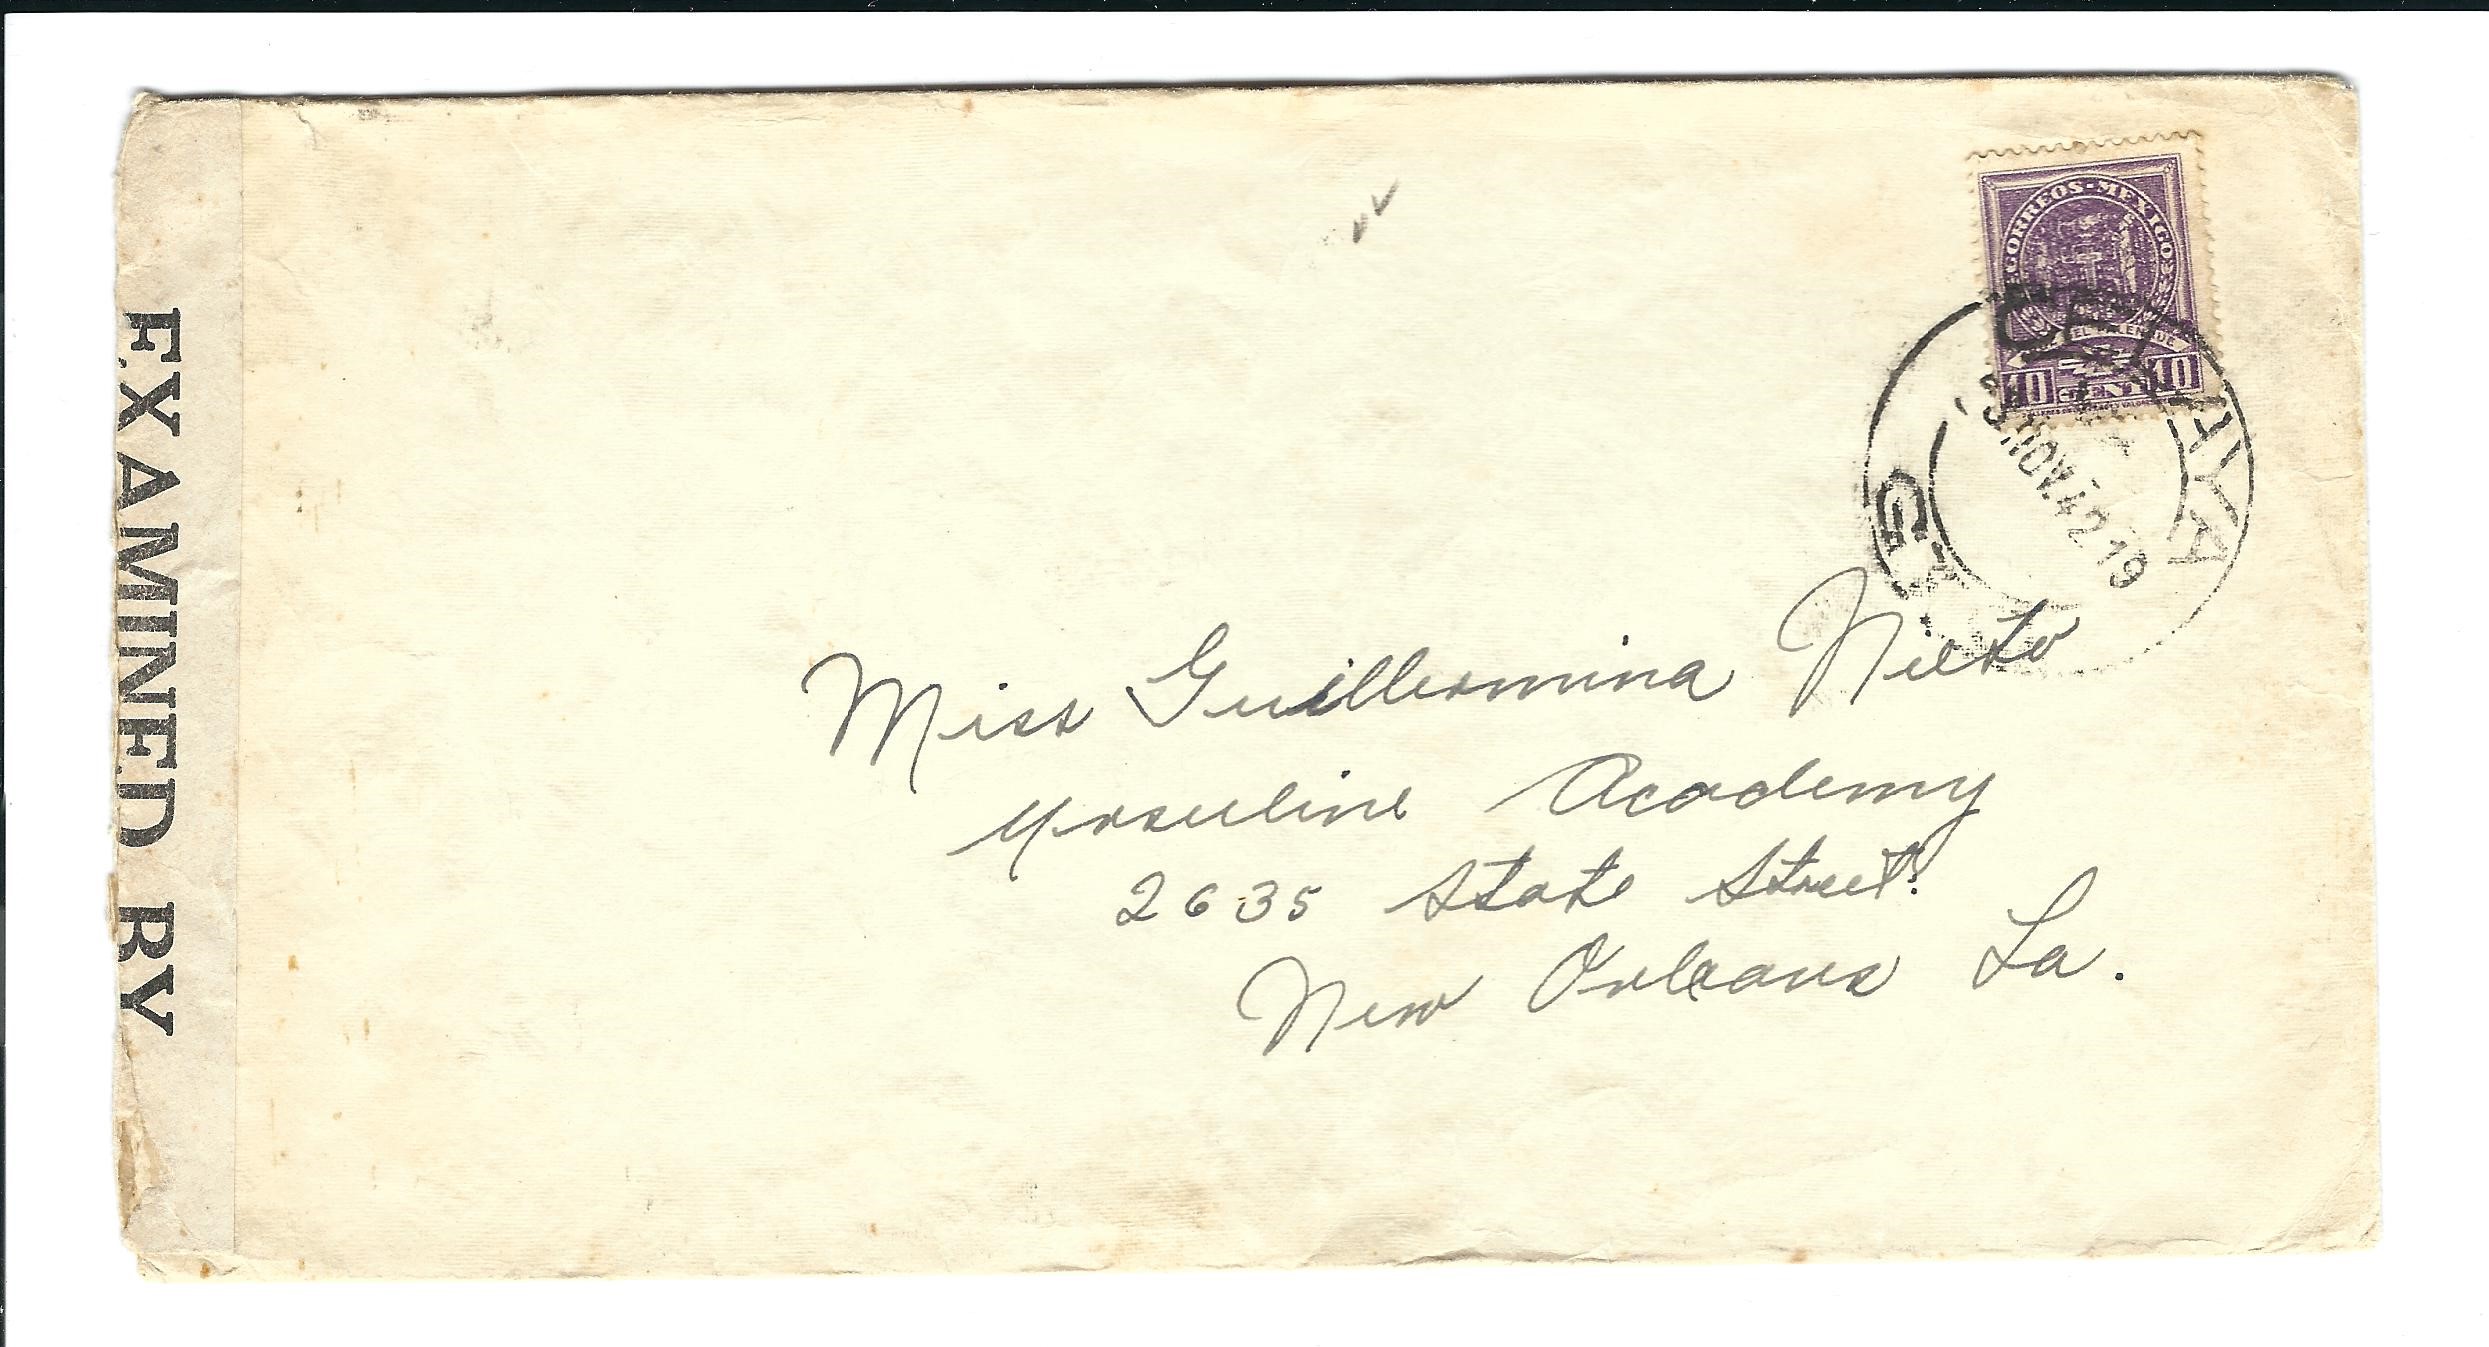 EXAMINED BY
CORREOS-MEXICO
10 CENT 10
CELAYA
3. NOV. 42 19
Miss Guillermina Nieto
Ursuline Academy
2635 State Street.
New Orleans La.